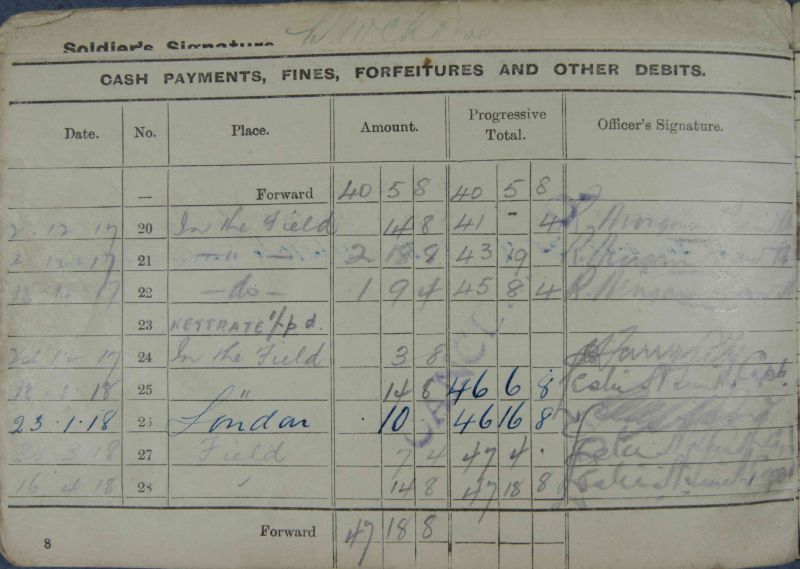 Soldier's Signature
CASH PAYMENTS, FINES, FORFEITURES AND OTHER DEBITS.
Date. No. Place. Amount. Progressive Total. Officer's Signature.
— Forward 40 5 8 40 5 8
2.12.17 20 In the Field 14 8 41 - 4 R. Morgan
12.17 21 — " — 2 18 8 43 19 - R. Morgan
12.17 22 — do — 1 9 4 45 8 4 R. Morgan
23 NETTRATE 1/- p d.
12.17 24 In the Field 3 8
18.1.18 25 " 14 8 46 6 8
23.1.18 26 London 10 46 16 8
3.18 27 Field 7 4 47 4 .
16.4.18 28 " 14 8 47 18 8
Forward 47 18 8
8
CANCEL